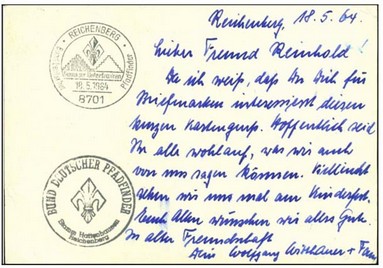 REICHENBERG
Pfadfinder
18.5.1964
8701
BUND DEUTSCHER PFADFINDER
Reichenberg
Reichenberg, 18.5.64.
Lieber Freund Reinhold!
Da ich weiß, daß Du Dich für
Briefmarken interessierst diesen
kurzen Kartengruß. Hoffentlich seid
Ihr alle wohlauf, was wir auch
von uns sagen können. Vielleicht
sehen wir uns mal am Kinderfest.
Euch Allen wünschen wir alles Gute.
In alter Freundschaft
Dein Wolfgang + Fam